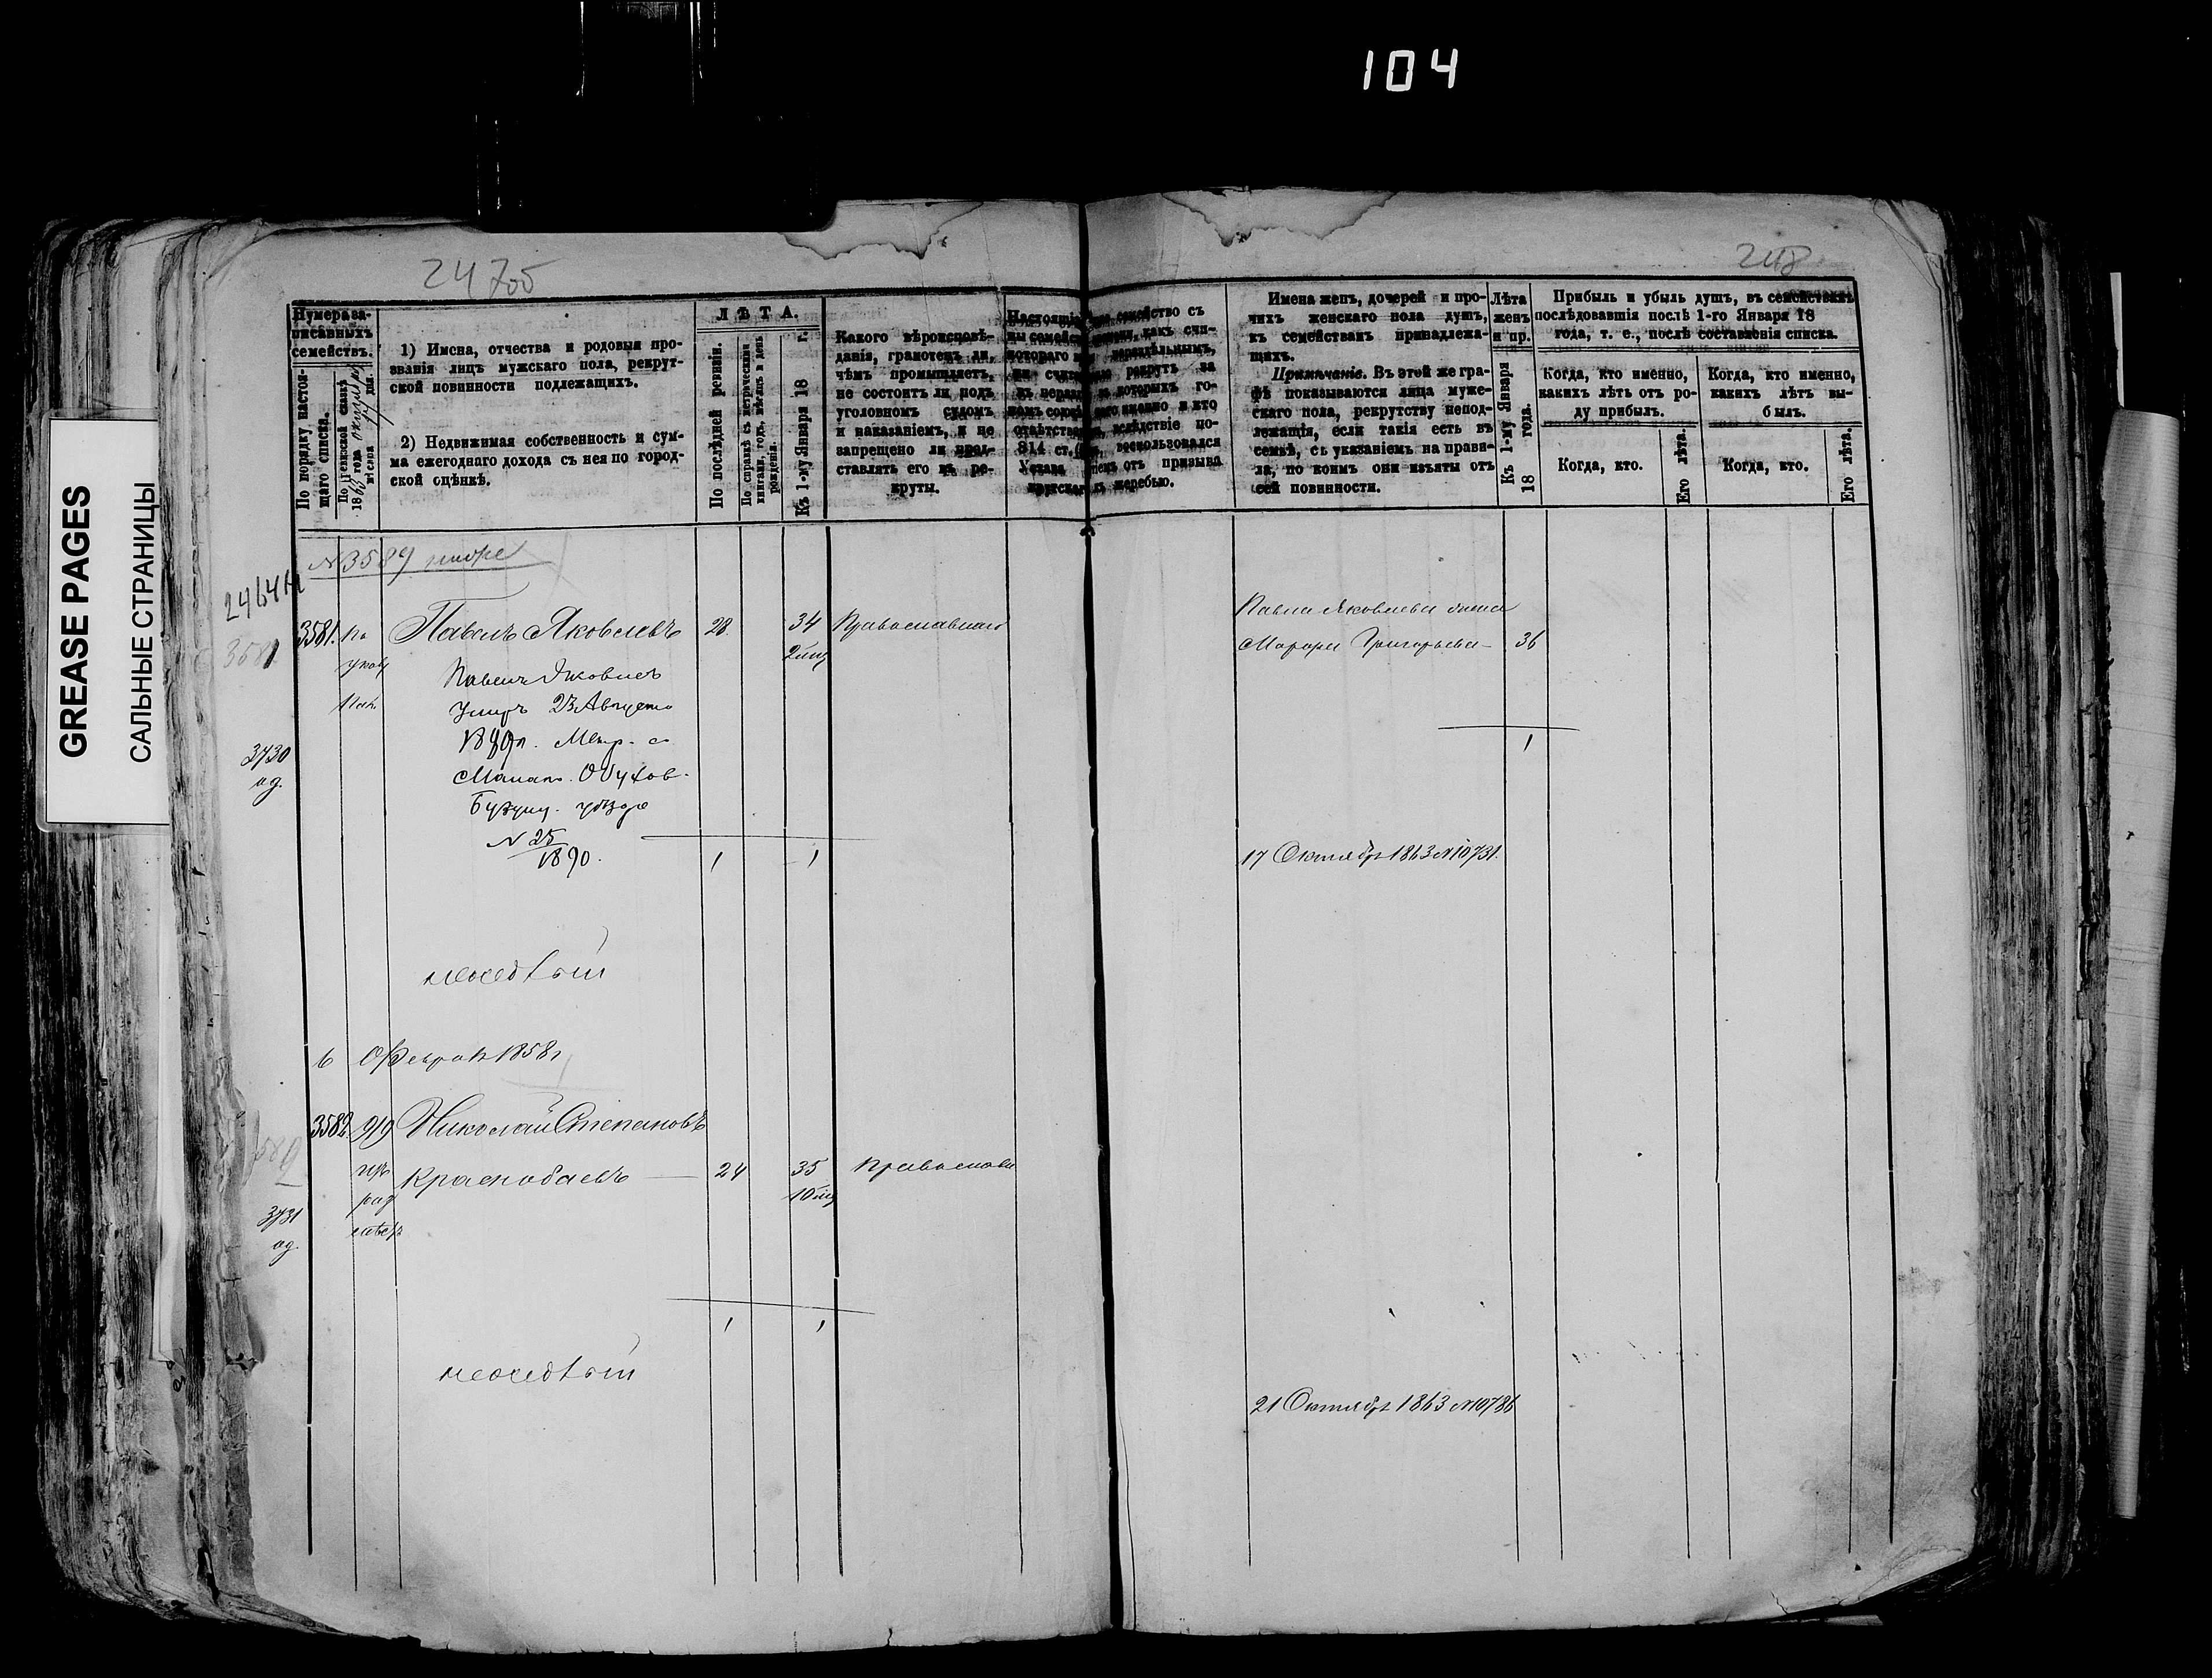 104
GREASE PAGES
САЛЬНЫЕ СТРАНИЦЫ
24705
248
Нумера за-
писанныхъ
семействъ.
По порядку настоя-
щаго списка.
1) Имена, отчества и родовыя про-
званія лицъ мужскаго пола, рекрут-
ской повинности подлежащихъ.
2) Недвижимая собственность и сум-
ма ежегоднаго дохода съ нея по город-
ской оцѣнкѣ.
ЛѢТА.
По послѣдней ревизіи.
По справкѣ съ метрическими
книгами, годъ, мѣсяцъ и день
рожденія.
Къ 1-му Января 18 г.
Какого вѣроисповѣ-
данія, грамотенъ ли,
чѣмъ промышляетъ,
не состоитъ ли подъ
уголовномъ судомъ
и наказаніемъ, и не
запрещено ли пред-
ставлять его въ ре-
круты.
семейство съ
какъ счи-
нераздѣльнымъ,
рекрутъ за
которыхъ го-
именно и кто
вслѣдствіе по-
814 ст. воспользовался
Устава отъ призыва
жеребью.
Имена женъ, дочерей и про-
чихъ женскаго пола душъ,
къ семействамъ принадлежа-
щихъ.
Примѣчаніе. Въ этой же гра-
фѣ показываются лица муже-
скаго пола, рекрутству непод-
лежащія, если такія есть въ
семьѣ, съ указаніемъ на прави-
ла, по коимъ они изъяты отъ
сей повинности.
Лѣта
женъ
и пр.
Къ 1-му Января
18 года.
Прибыль и убыль душъ, въ семействахъ
послѣдовавшія послѣ 1-го Января 18
года, т. е., послѣ составленія списка.
Когда, кто именно,
какихъ лѣтъ отъ ро-
ду прибылъ.
Когда, кто именно,
какихъ лѣтъ вы-
былъ.
Когда, кто.
Его лѣта.
Когда, кто.
Его лѣта.
N 3589 ниже
3581. Павелъ Яковлевъ 28 34 Православнаго
Павла Яковлева жена
Марфа Григорьева 36
Павелъ Яковлев
Умеръ 23 Августа
Бузулу. уѣзда
N 25
1890.
1 1
1
3730
од.
17 Октября 1863 N 10731.
неосѣдлый
6 Февраля 1858 г
3582. 919 Николай Степановъ
Краснобаевъ 24 35 Православн
3731
од.
1 1
неосѣдлый
21 Октября 1863 N 10786